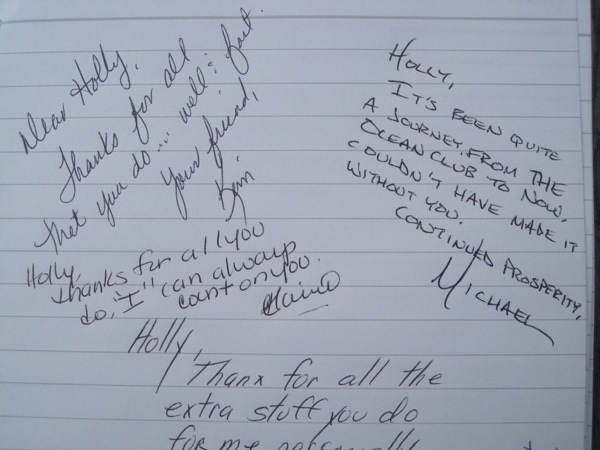 Dear Holly,
Thanks for all
that you do... well & fast.
Your friend,
Kim
Holly,
thanks for all you
do, "I" can always
count on you.
Elaine
HOLLY,
IT'S BEEN QUITE
A JOURNEY. FROM THE
OCEAN CLUB TO NOW.
COULDN'T HAVE MADE IT
WITHOUT YOU.
CONTINUED PROSPERITY,
MICHAEL
Holly,
Thanx for all the
extra stuff you do
for me personally